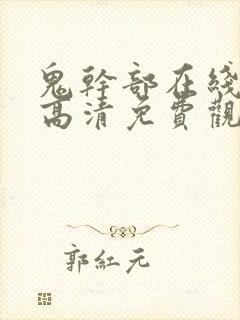 鬼幹部在綫
高清免費觀
郭紅元